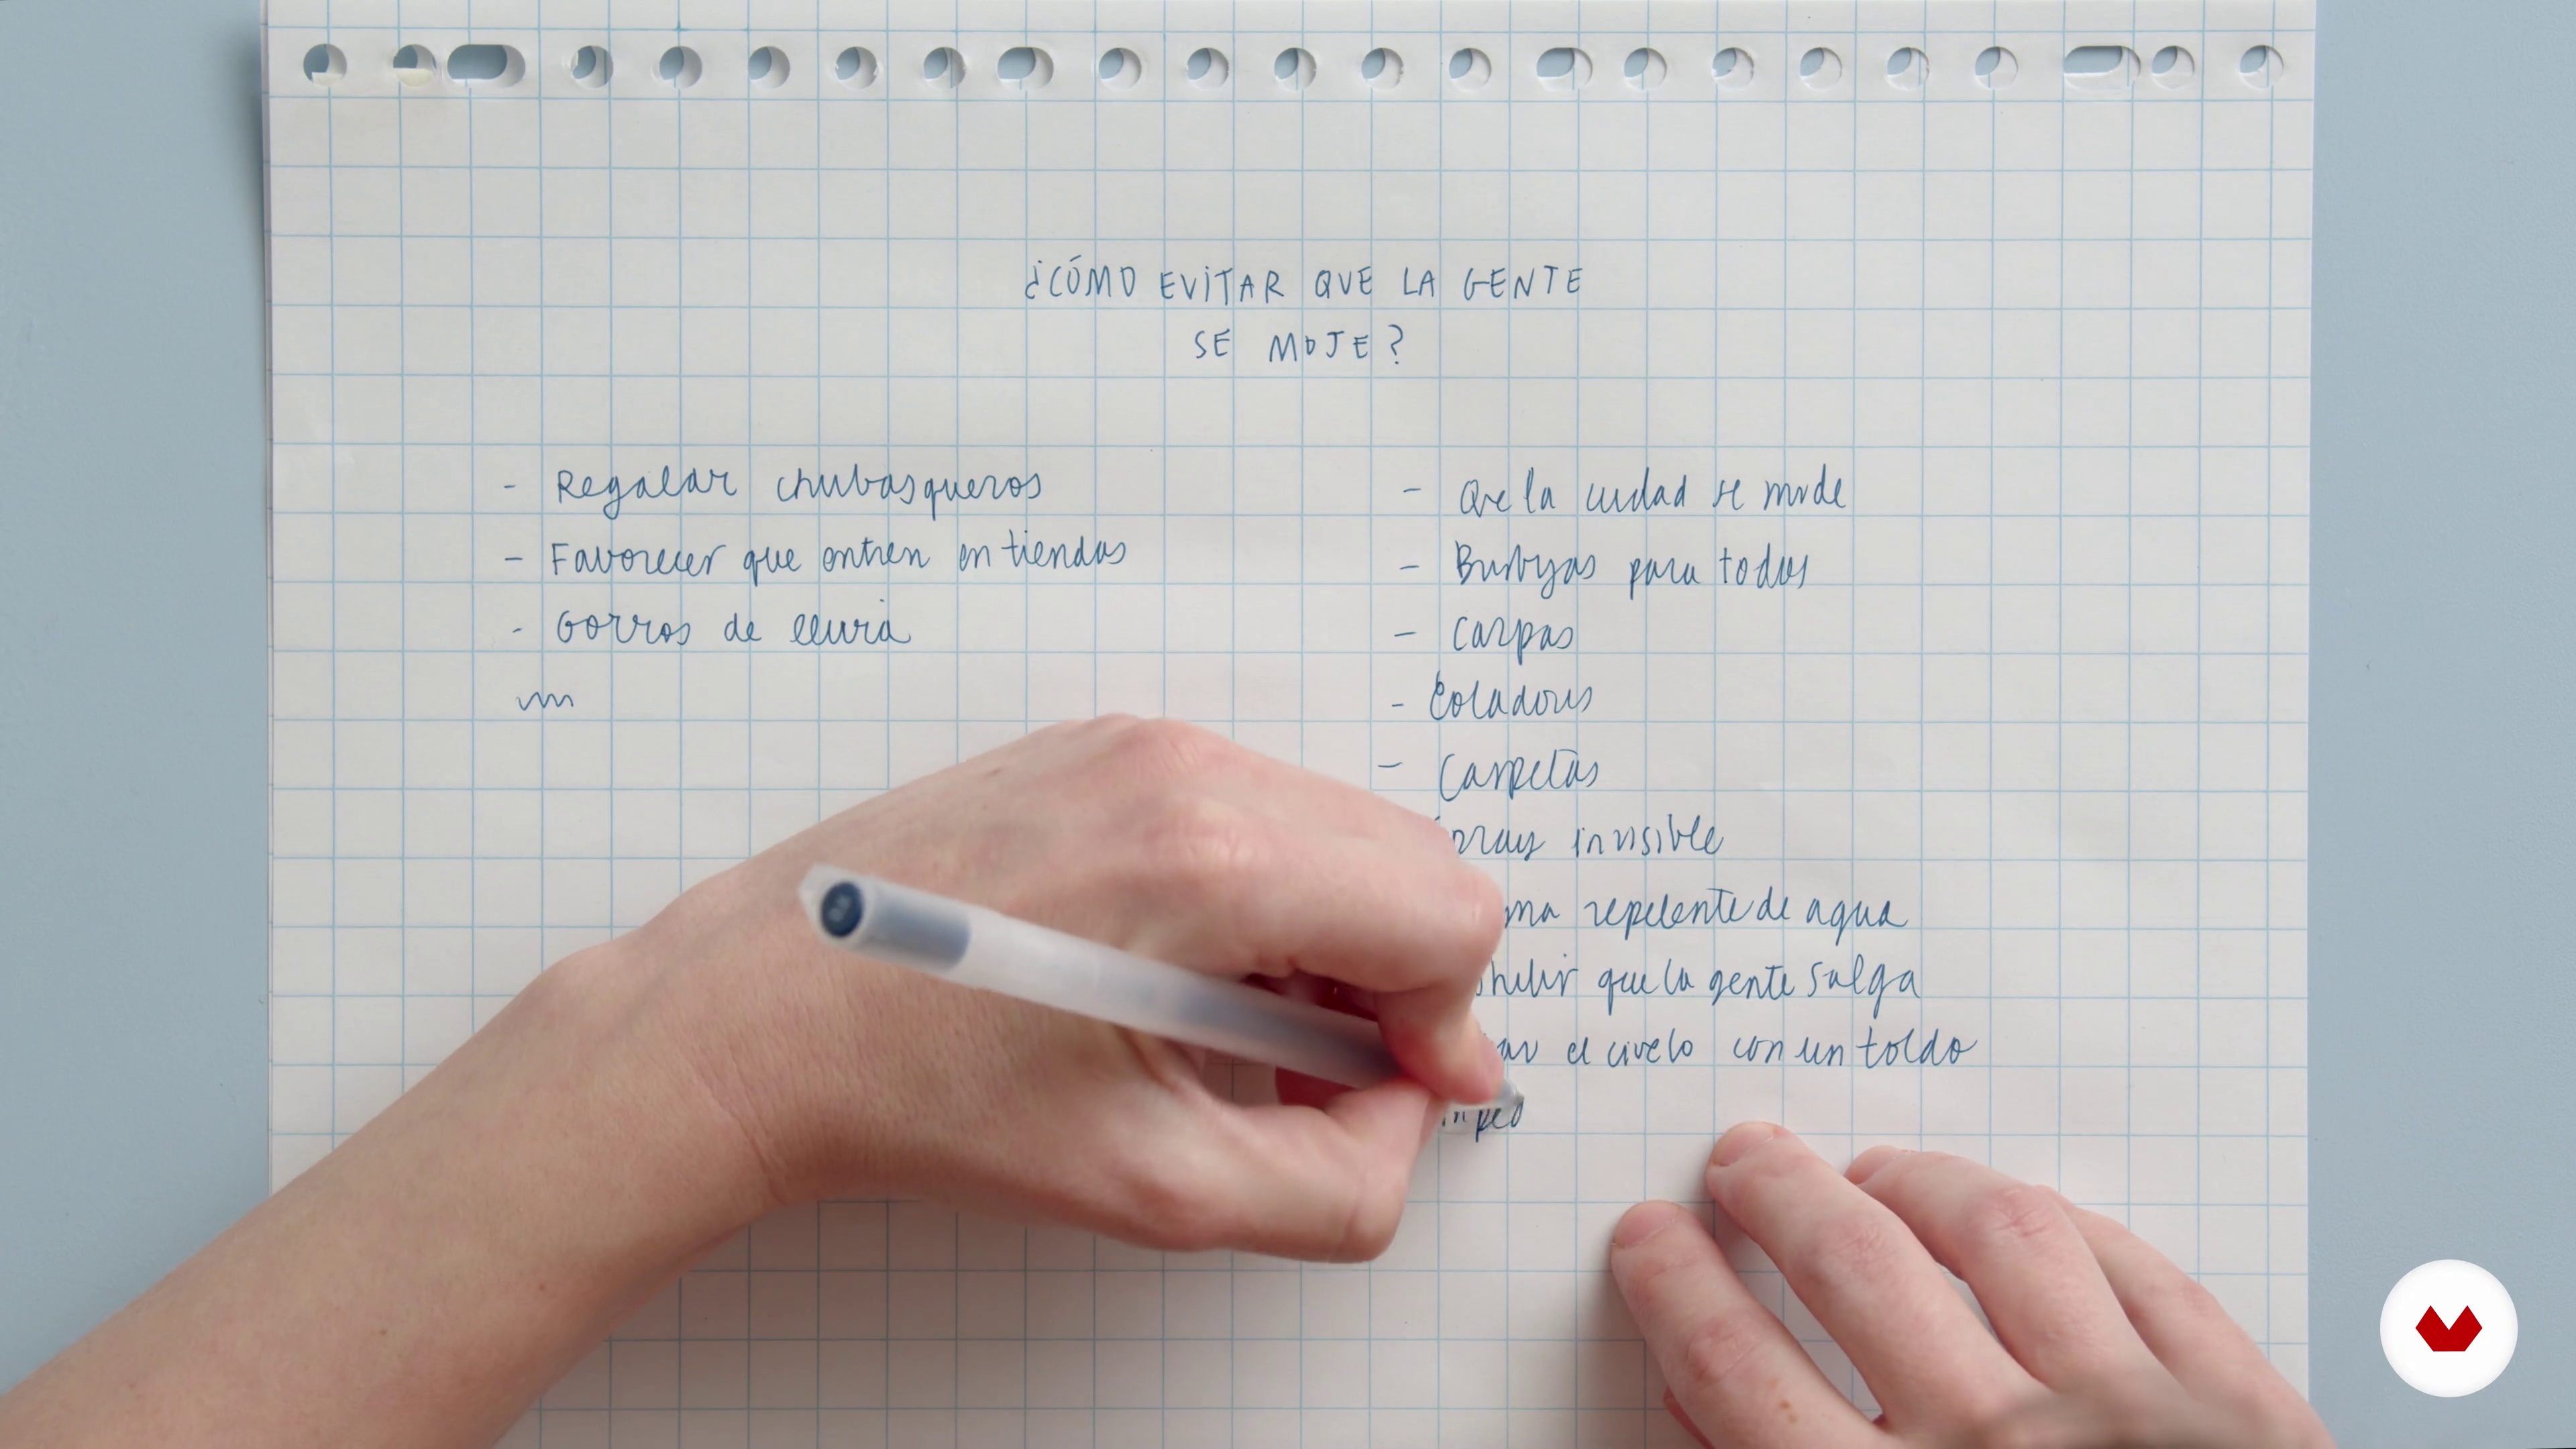 ¿CÓMO EVITAR QUE LA GENTE
SE MOJE?
- Regalar chubasqueros
- Favorecer que entren en tiendas
- Gorros de lluvia
- Que la ciudad se mude
- Burbujas para todos
- Carpas
- Coladores
- Carpetas
invisible
repelente de agua
que la gente salga
el cuelo con un toldo